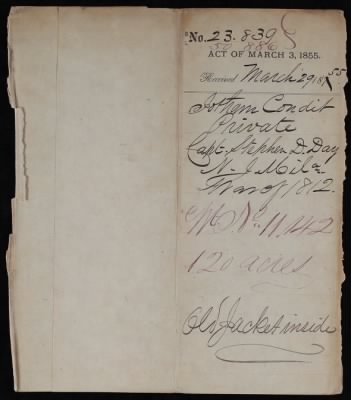 No. 23.839
50 886
ACT OF MARCH 3, 1855.
Received March 29, 1855
Jotham Condit
Private
Capt. Stephen D. Day
N. J. Mila
War of 1812.
Wt. No 11,142
120 acres
Old Jacket inside